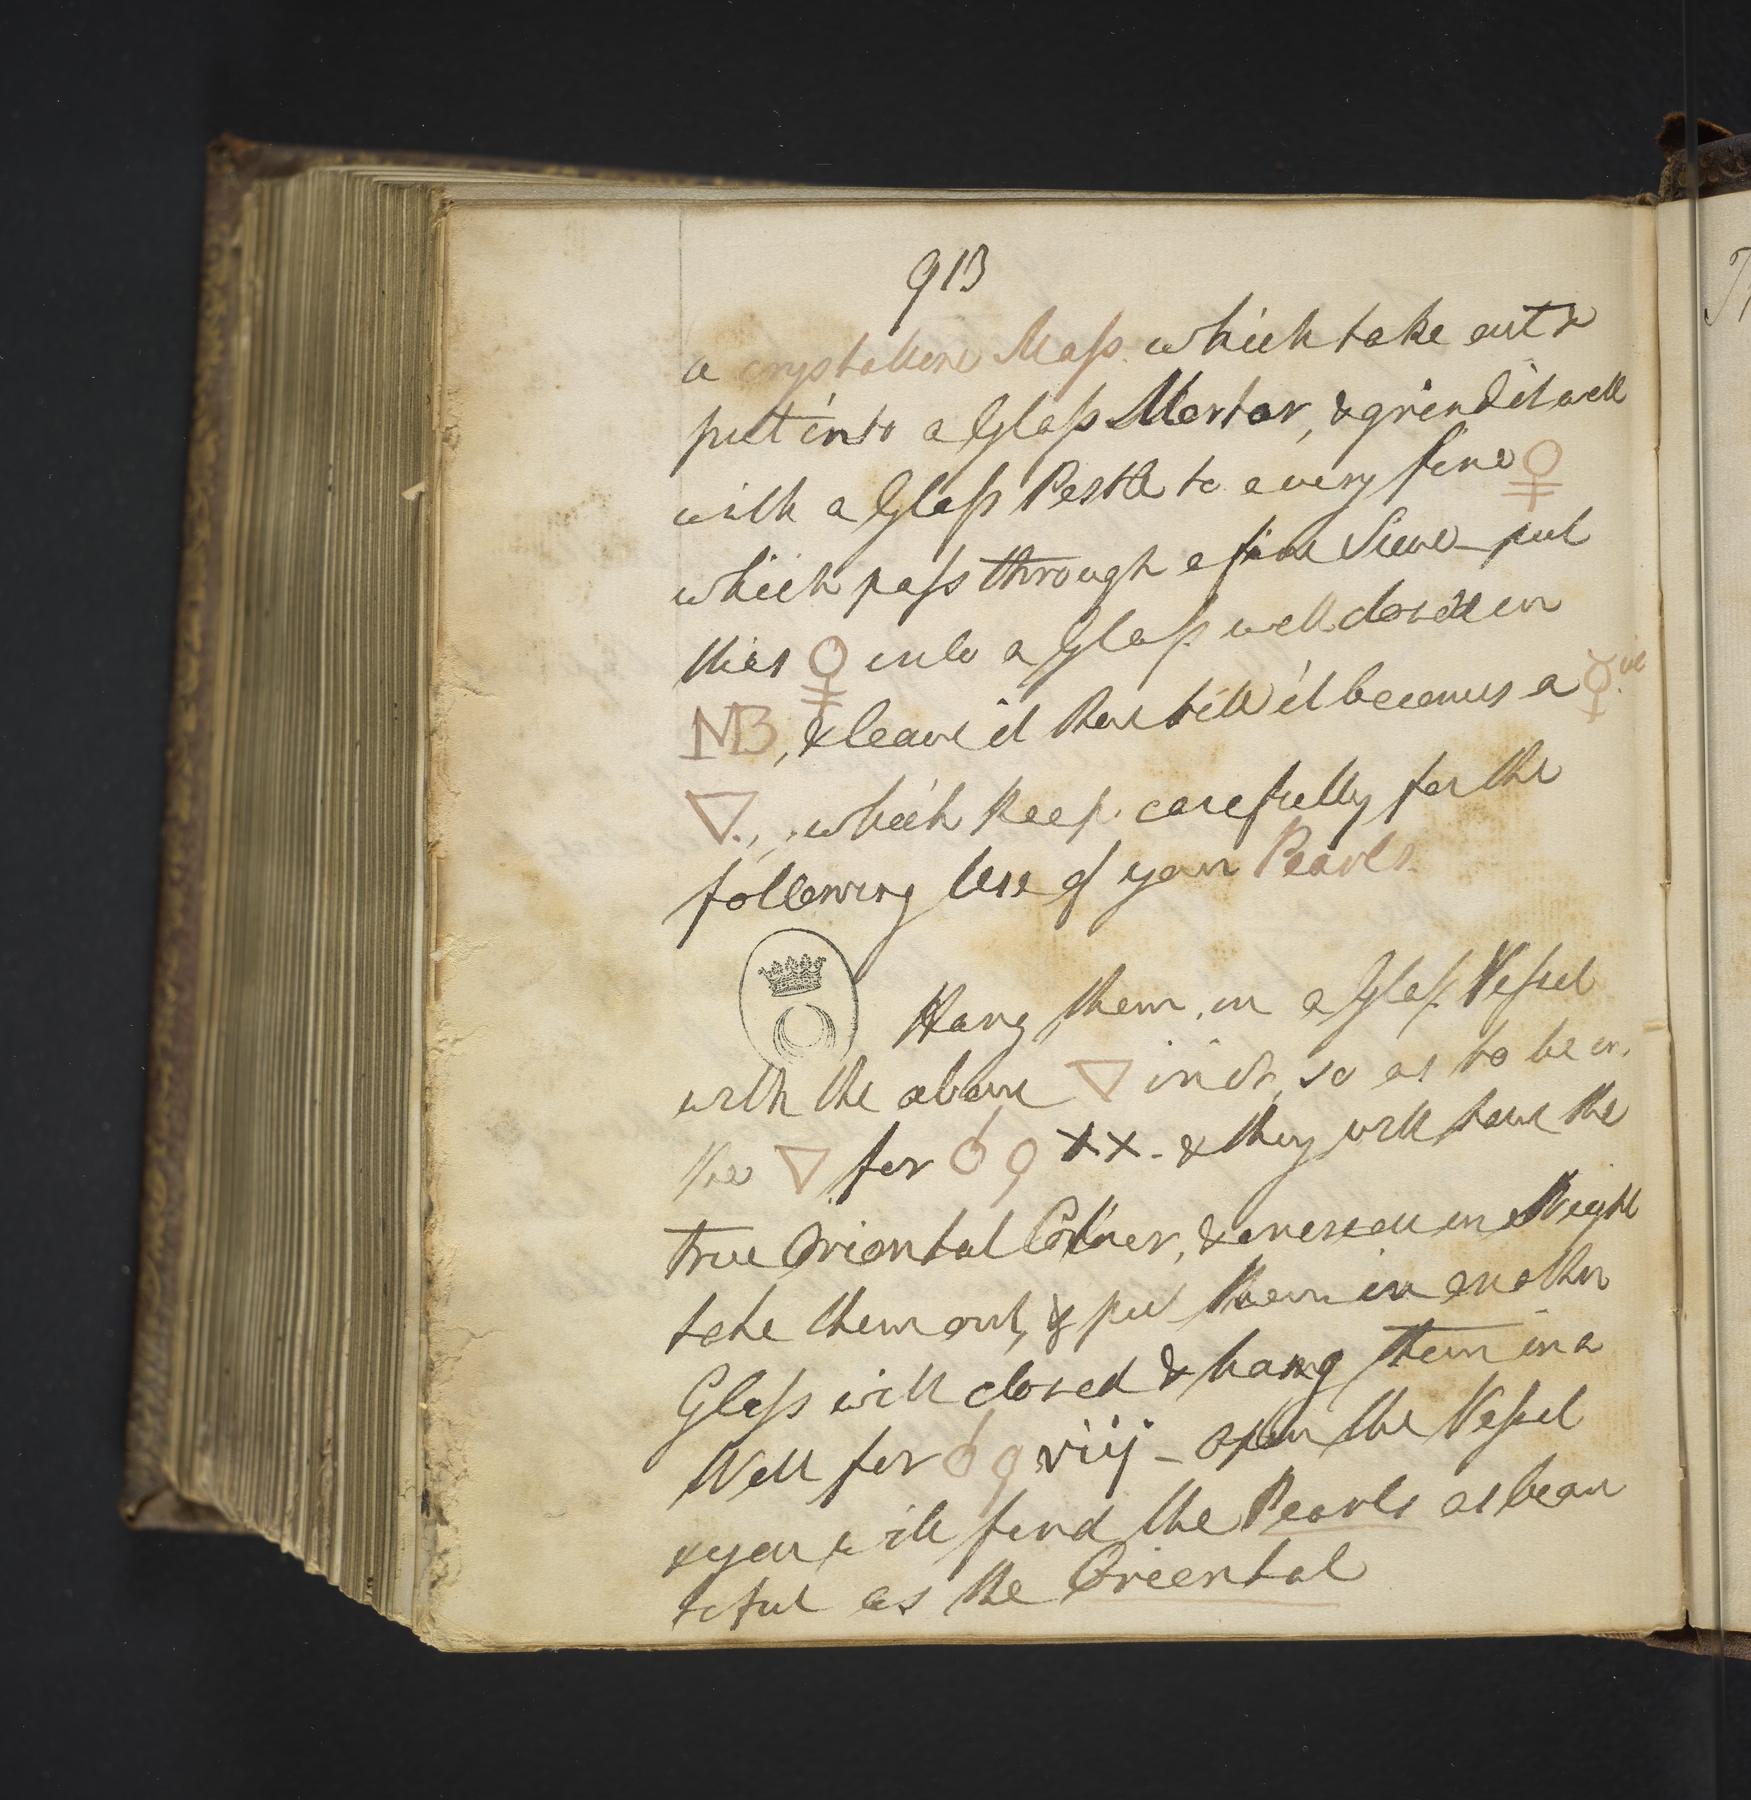 913
a crystalline Maſs which take out &
put into a Glaſs Mortar, & grind it well
with a Glaſs Pestle to a very fine
which paſs through a fine Sieve – put
this into a Glaſs well closed in
MB, & leave it there till it becomes a ☿
▽., which keep carefully for the
following Use of your Pearls.
Hang them, in a Glaſs Veſsel
with the above ▽ in it, so as to be in
the ▽ for xx. & they will have the
true Oriental Colour, & increase in Weight
take them out, & put them in another
Glaſs well closed & hang them in a
Well for viij – open the Veſsel
& you will find the Pearls as beau
tiful as the Oriental